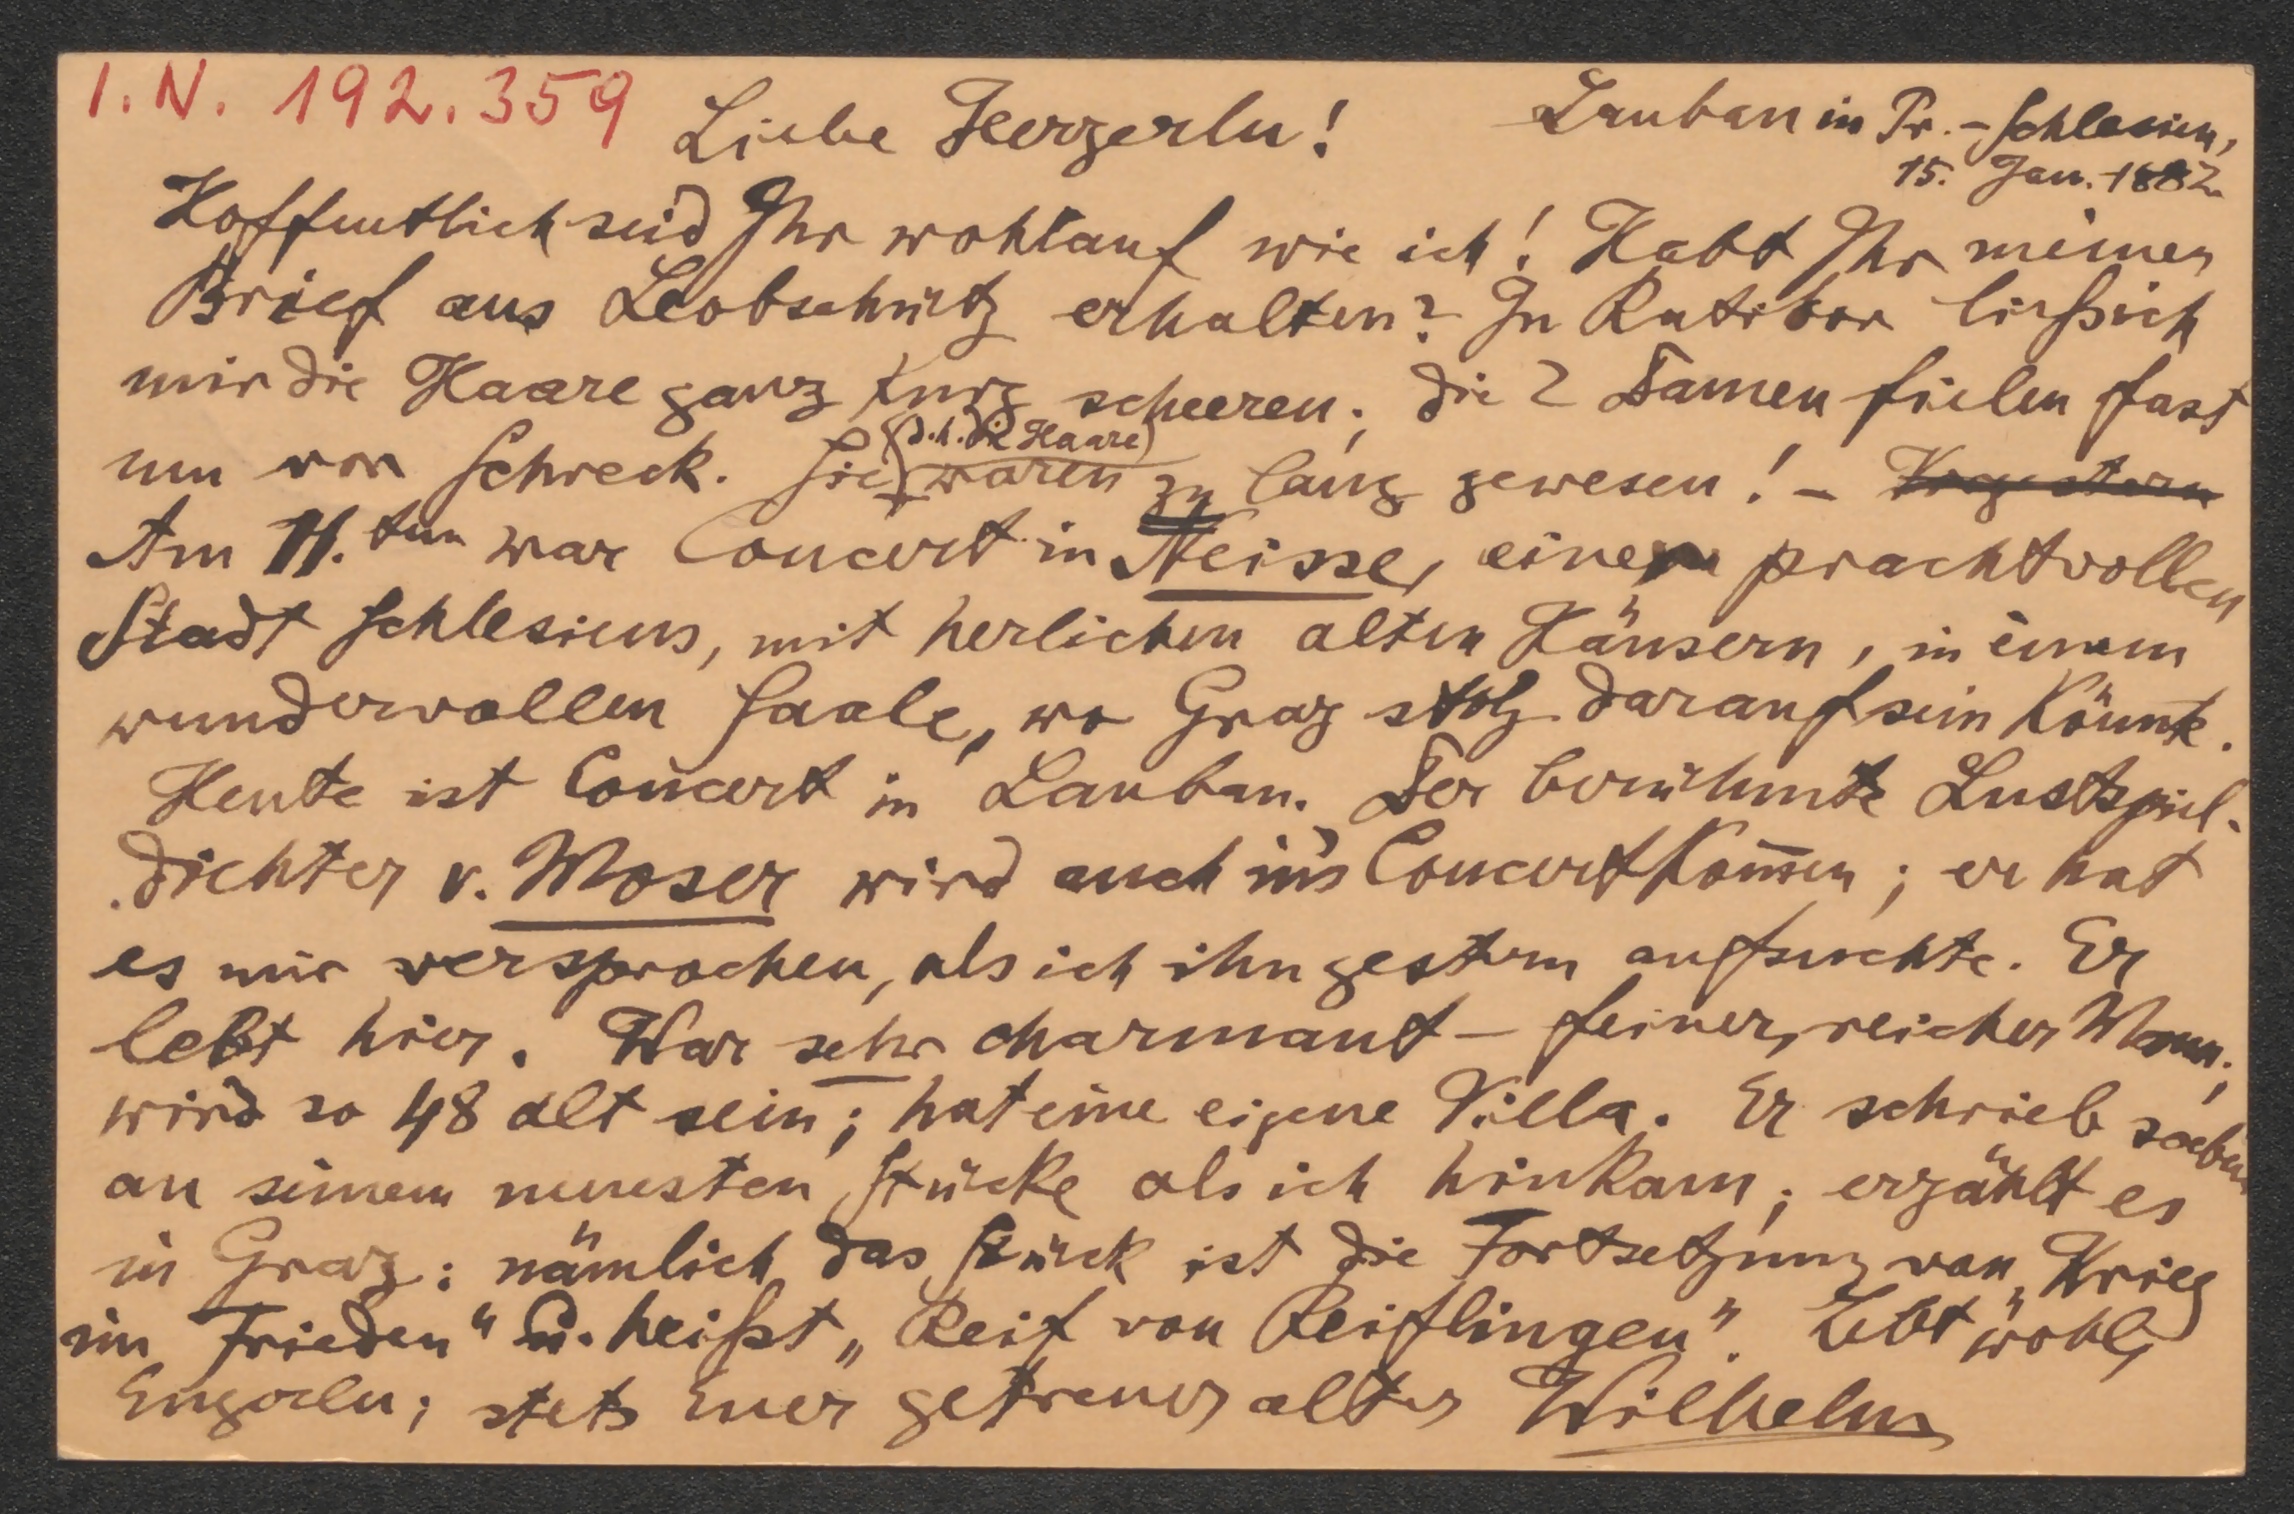 I.N. 192.359
Liebe Herzerln!
Lauban in Pr.-Schlesien,
15. Jan. 1882.
Hoffentlich seid Ihr wohlauf wie ich! Habt Ihr meinen
Brief aus Leobschütz erhalten? In Ratibor ließ ich
mir die Haare ganz kurz scheeren; die 2 Damen fielen fast
um vor Schreck. Sie (d.h. die Haare) waren zu lang gewesen! – Vorgestern
Am 11.ten war Concert in Neisse, einer prachtvollen
Stadt Schlesiens, mit herlichen alten Häusern, in einem
wundervollen Saale, wo Graz stolz darauf sein könnte.
Heute ist Concert in Lauban. Der berühmte Lustspiel-
dichter v. Moser wird auch in's Concert kom̄en; er hat
es mir versprochen, als ich ihn gestern aufsuchte. Er
lebt hier. War sehr charmant – feiner, reicher Mann;
wird so 48 alt sein; hat eine eigene Villa. Er schrieb soeben
an seinem neuesten Stücke als ich hinkam; erzählt es
in Graz: nämlich das Stück ist die Fortsetzung von „Krieg
im Frieden" u. heißt „Reif von Reiflingen". Lebt wohl,
Engerln; stets Euer getreuer alter Wilhelm